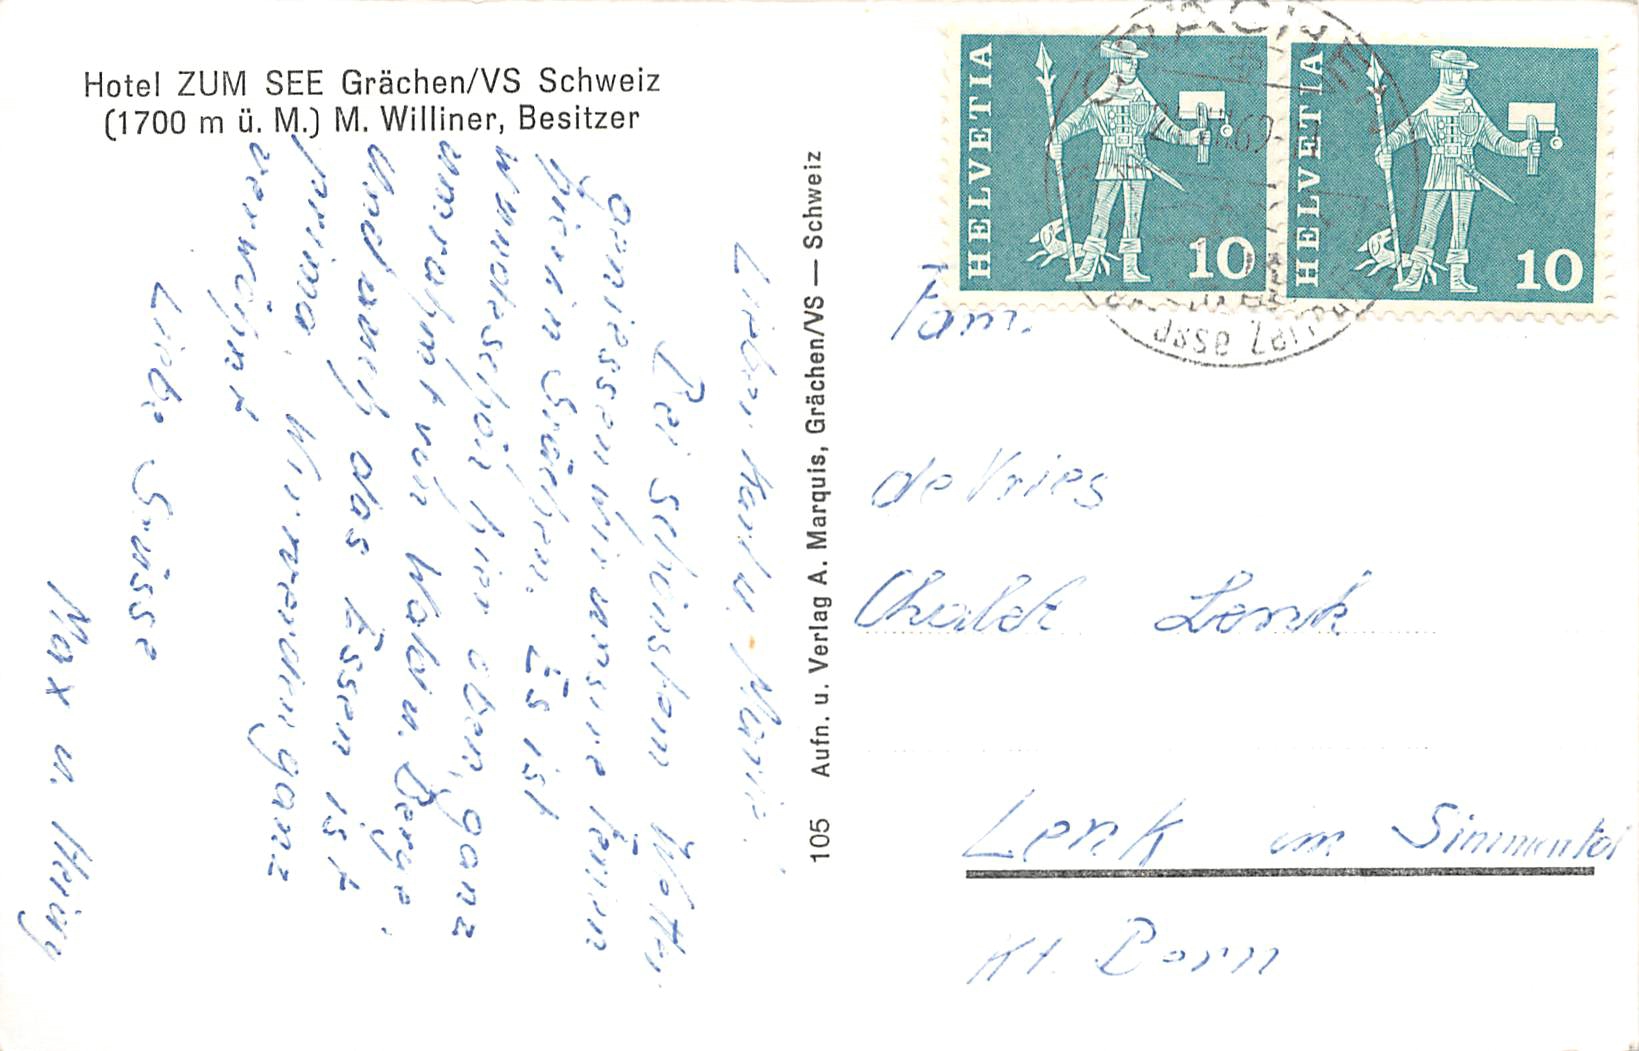 Hotel ZUM SEE Grächen/VS Schweiz
(1700 m ü. M.) M. Williner, Besitzer
Lieber Karl u. Marie.
Bei schönstem Wetter
geniessen wir unsere Ferien
hier in Grächen. Es ist
wunderschön hier oben, ganz
umrahmt von Wald u. Berge.
Und auch das Essen ist
prima. Wir werden ganz
verwöhnt
Liebe Grüsse
Max u. Heiny
105 Aufn. u. Verlag A. Marquis, Grächen/VS — Schweiz
HELVETIA
10
HELVETIA
10
GRÄCHEN
Fam.
de Vries
Chalet Lenk
Lenk im Simmental
Kt. Bern